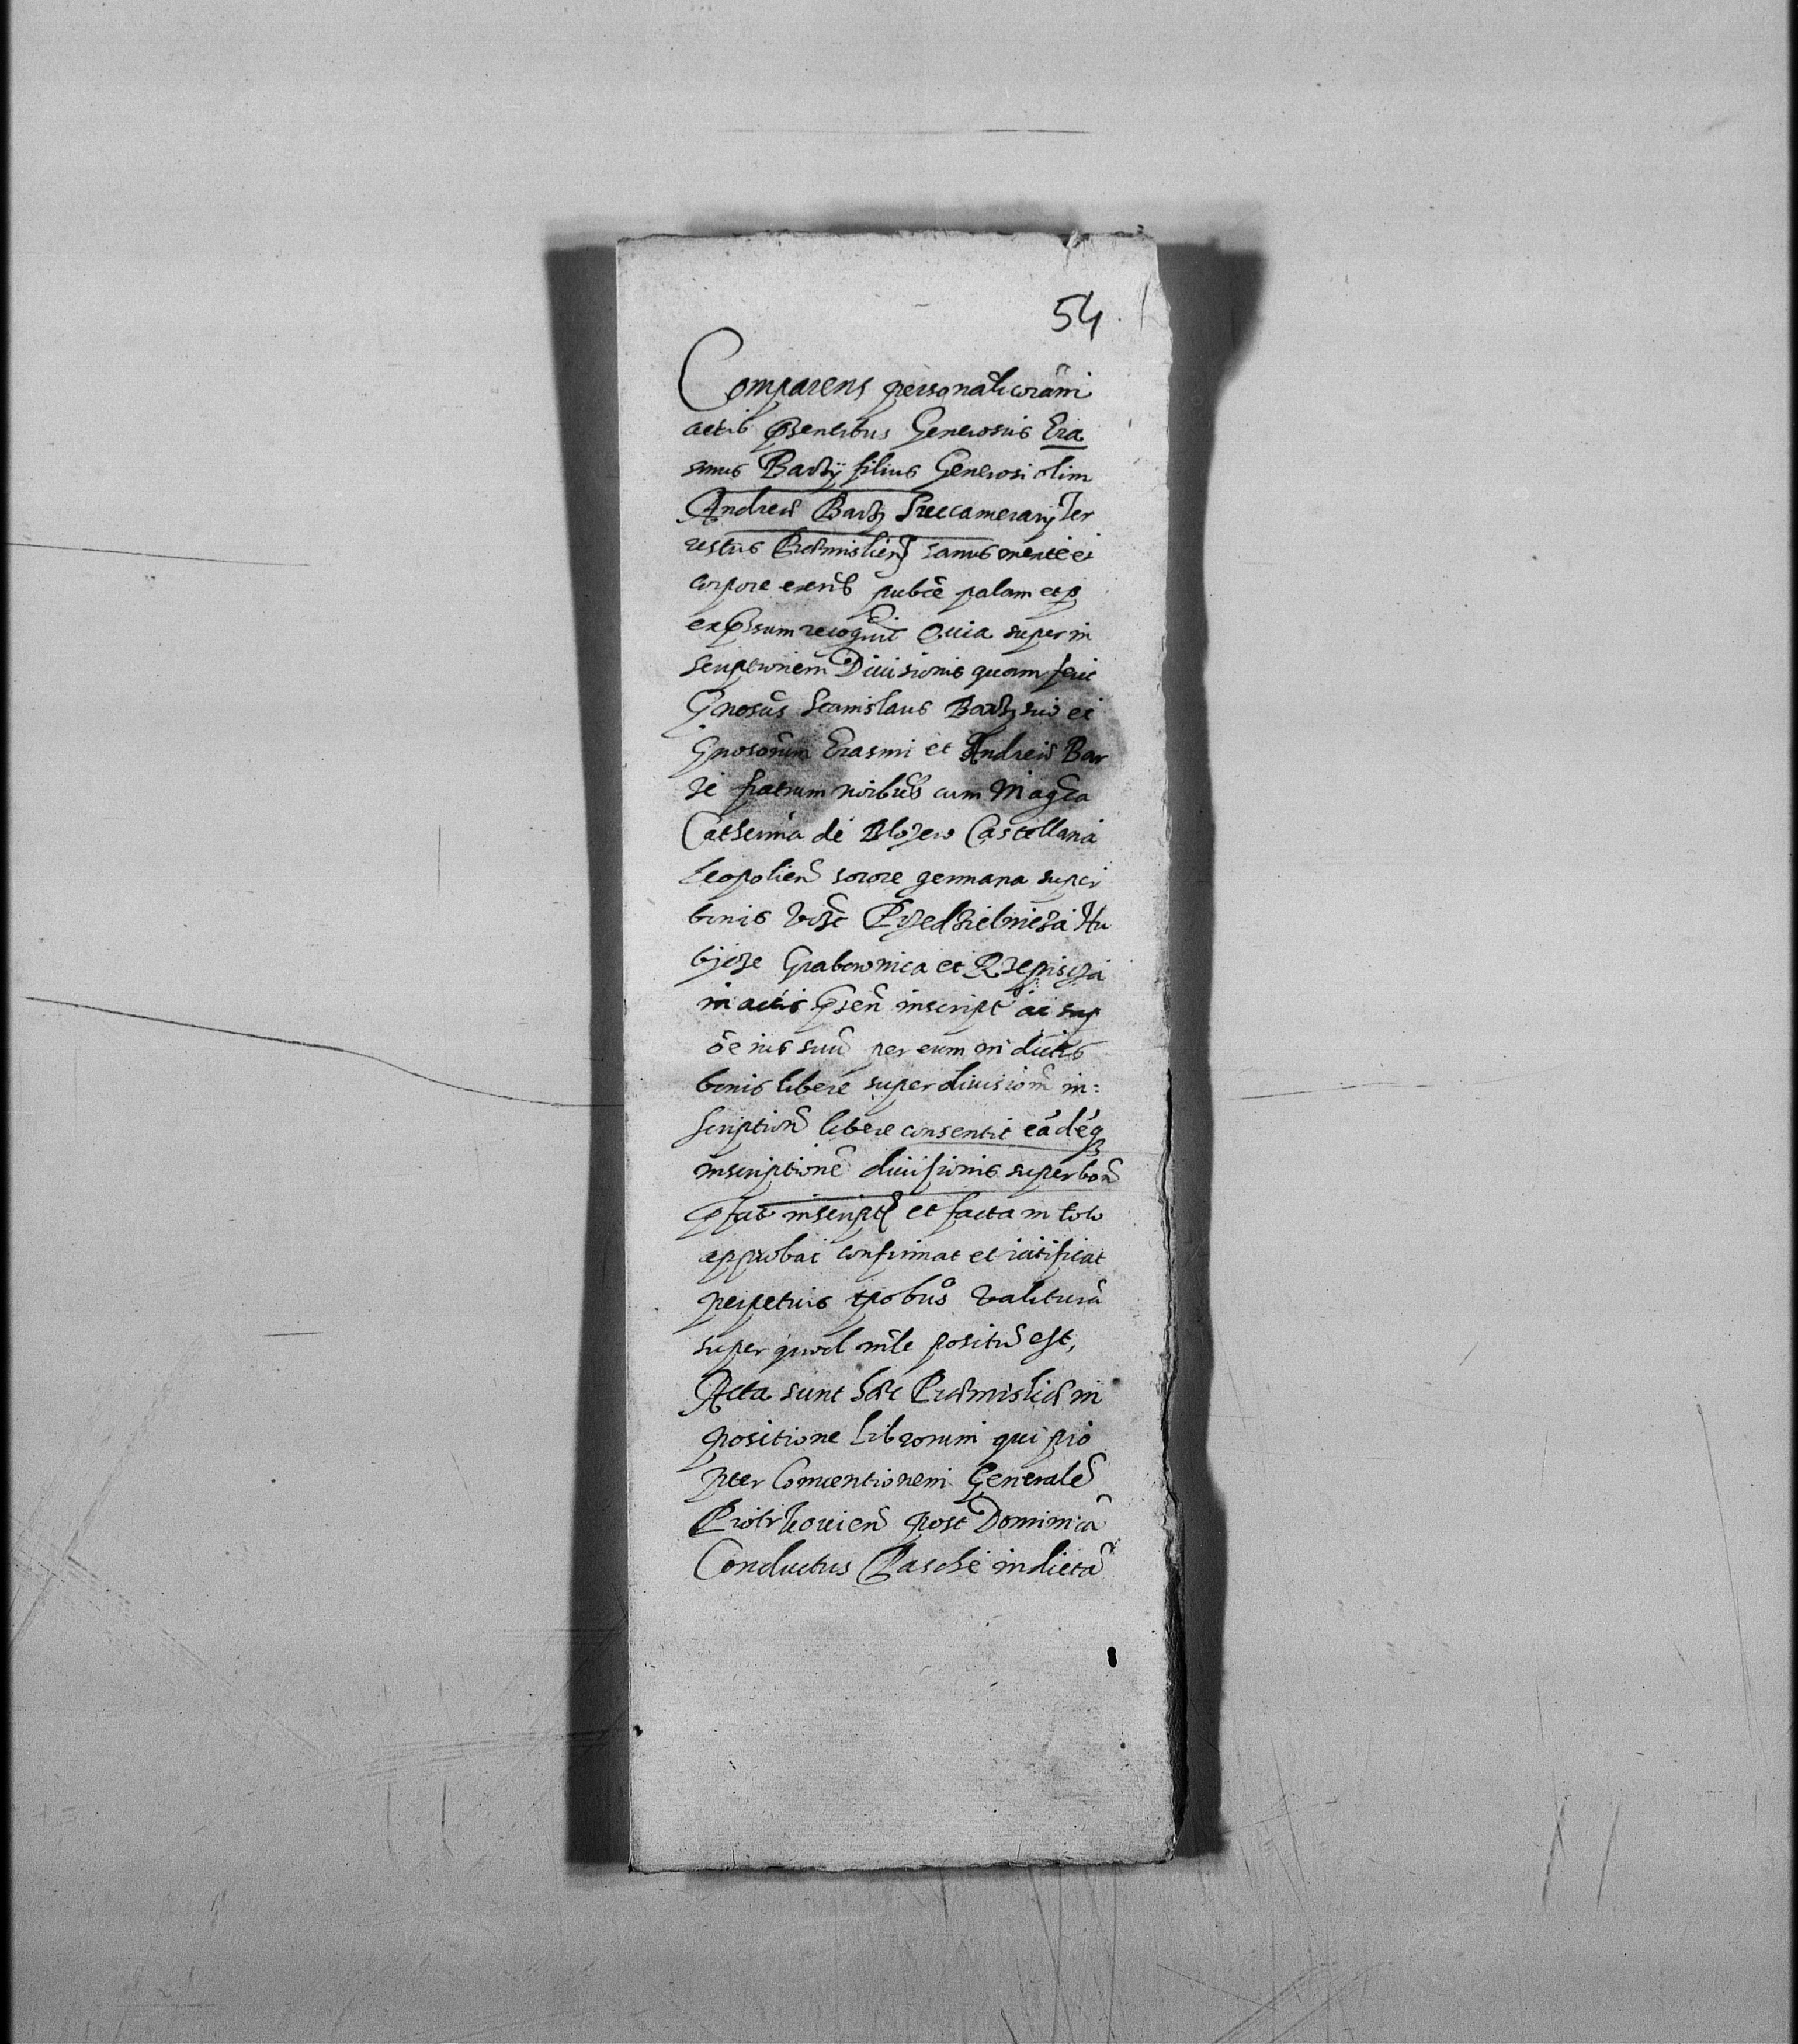 54
Comparens personalr coram
actis pñentibus Generosus Era
smus Barzÿ filius Generosi olim
Andreæ Barzi Succamerarÿ Ter
restris Præmislien sanus mente et
corpore exens publce palam et p
expssum recognit Quia super in
scriptionem Diuisionis quam fecit
Gnosus Stanislaus Barzi suo et
Gnosorum Erasmi et Andreæ Bar
zi fratrum noibus cum Magca
Catherina de Blozew Castellana
Leopolien sorore germana super
bonis Przedzielnicza Hu
Grabownica et Rzepiscza
in actis psen inscript ac sup
oe ius suu per eum in dictis
bonis libere super diuisiom in=
scription libere consentit eadeq
inscriptione diuisionis super bon
pfat inscript et facta in toto
approbat confirmat et ratificat
perpetuis tpobus valitura
super quod mle positu est,
Acta sunt hæc Præmisliæ in
positione Librorum qui pro
pter Conuentionem Generale
Piotrkouien post Dominica
Conductus Paschæ indicta